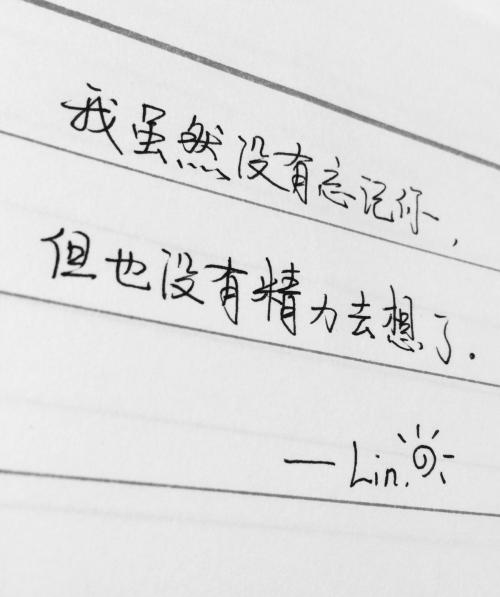 我虽然没有忘记你，
但也没有精力去想了.
— Lin.